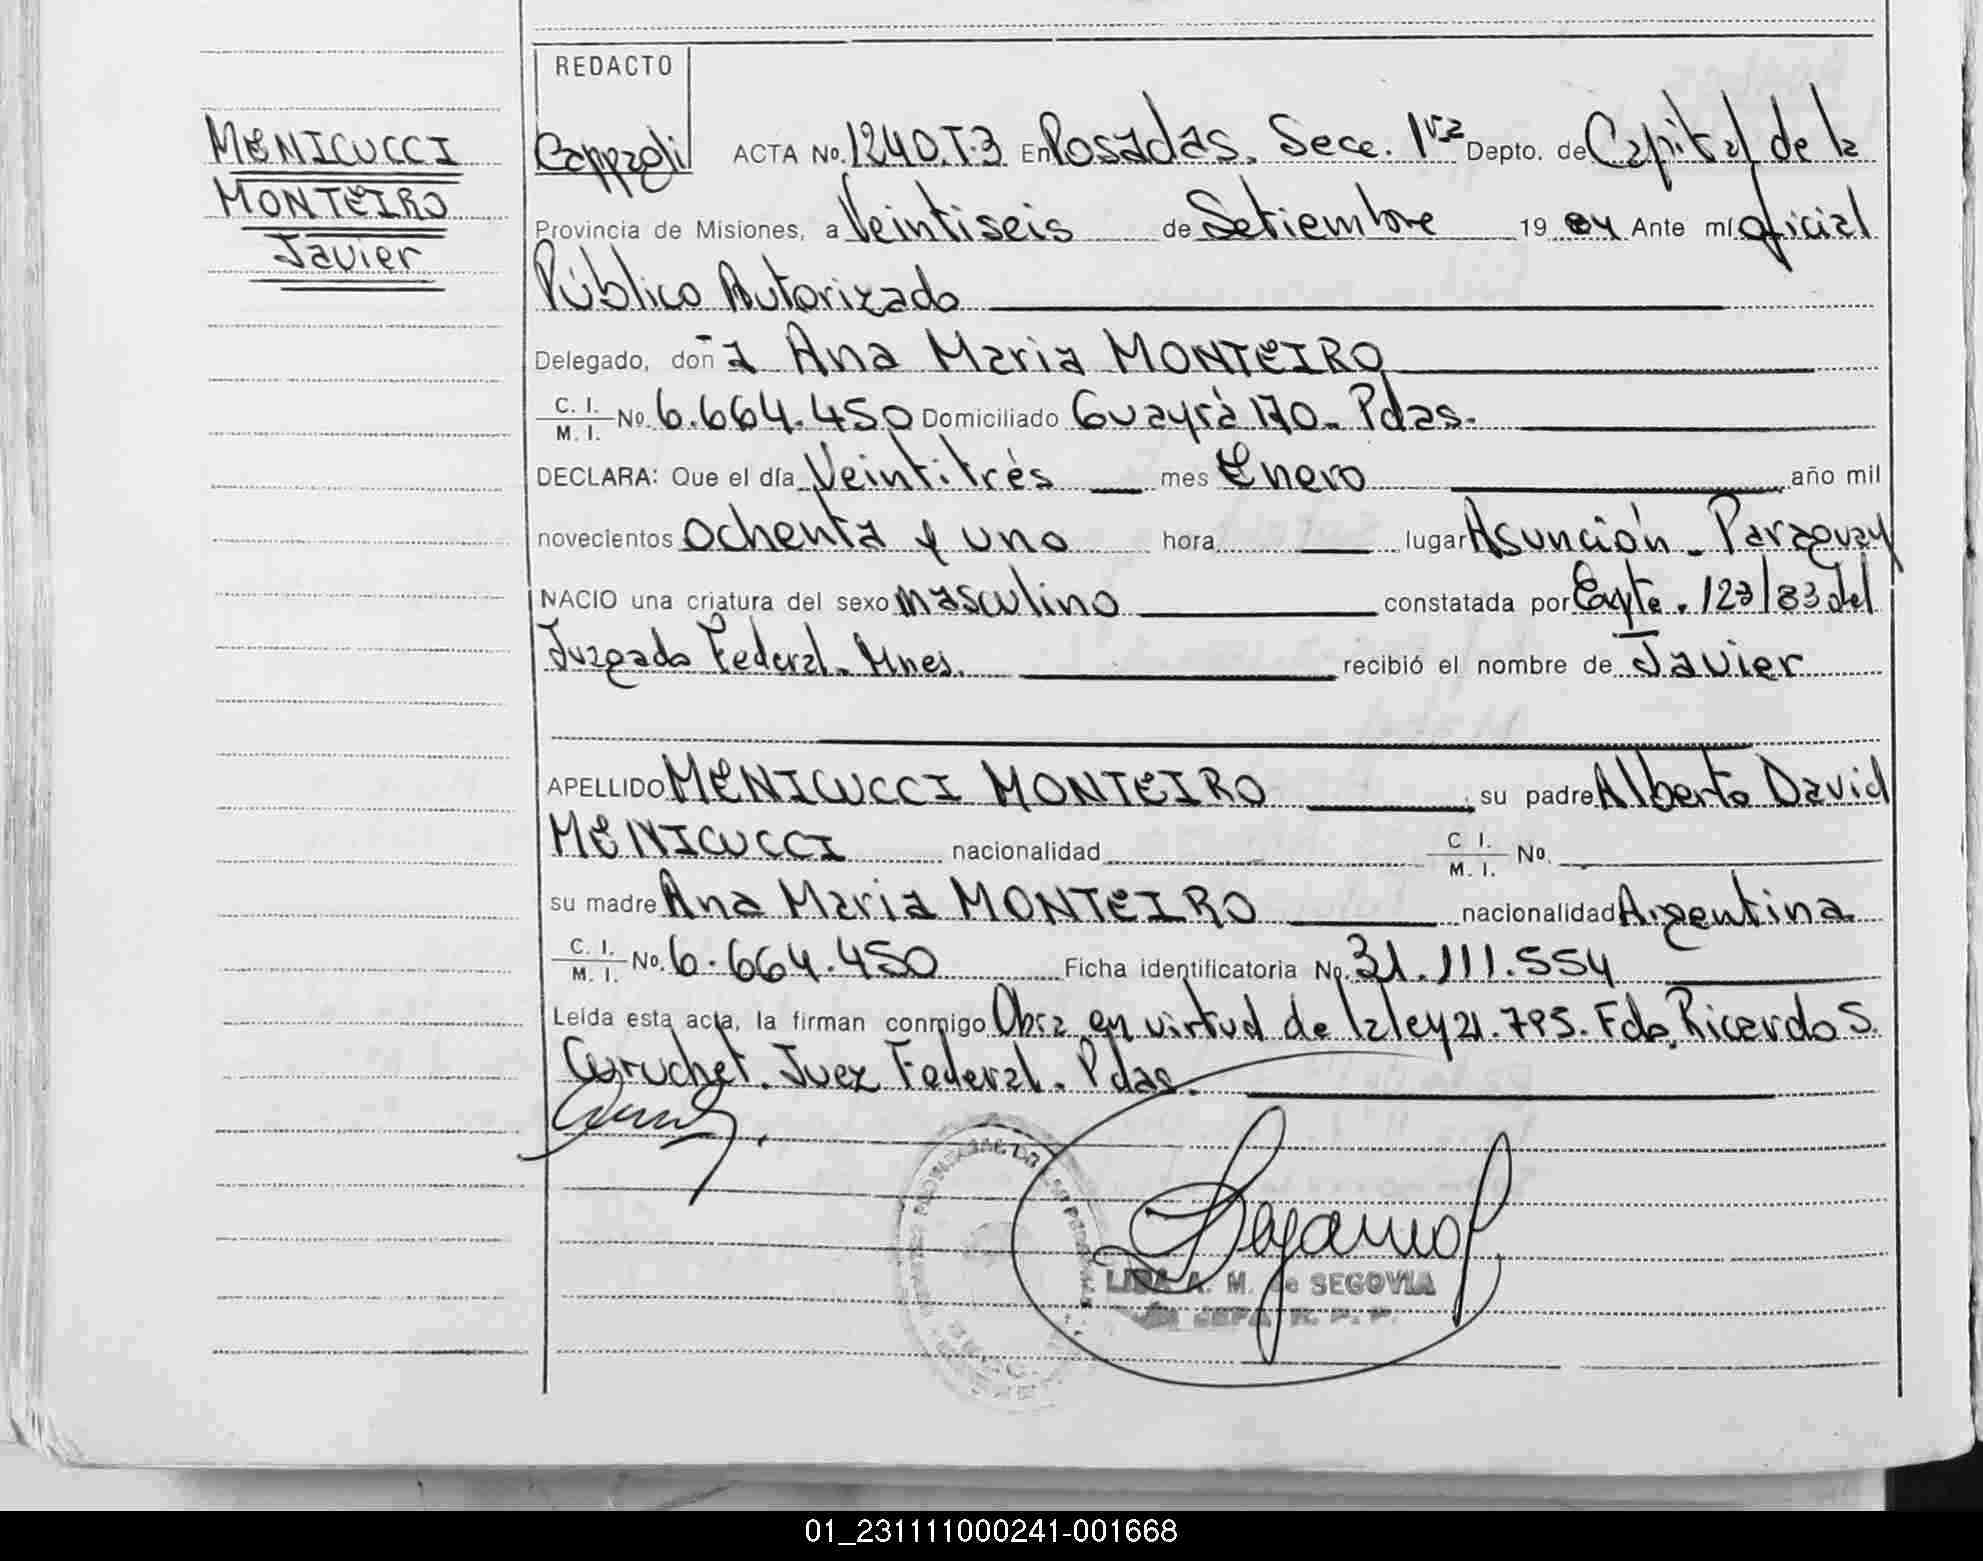 REDACTO
MENICUCCI
MONTEIRO
Javier
Cappagli ACTA No. 1240.T.3 En Posadas. Secc. 1ra Depto. de Capital de la
Provincia de Misiones, a Veintiseis de Setiembre 19 84 Ante mí oficial
Público Autorizado
Delegado, doña Ana Maria MONTEIRO
C. I.
M. I. No. 6.664.450 Domiciliado Guayrá 170 - Pdas.
DECLARA: Que el día Veintitrés mes Enero año mil
novecientos ochenta y uno hora lugar Asunción - Paraguay
NACIO una criatura del sexo masculino constatada por Expte. 123/83 del
Juzgado Federal. Mnes. recibió el nombre de Javier
APELLIDO MENICUCCI MONTEIRO su padre Alberto David
MENICUCCI nacionalidad C I.
M. I. No.
su madre Ana Maria MONTEIRO nacionalidad Argentina
C. I.
M. I. No. 6.664.450 Ficha identificatoria No. 31.111.554
Leída esta acta, la firman conmigo Obra en virtud de la ley 21.795. Fdo. Ricardo S.
Juez Federal. Pdas.
A. M. de SEGOVIA
JEFA R. P. P.
01_231111000241-001668